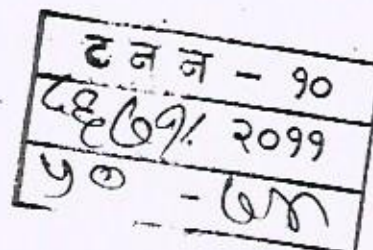 ट न न - १०
८६७१/ २०११
- ७४